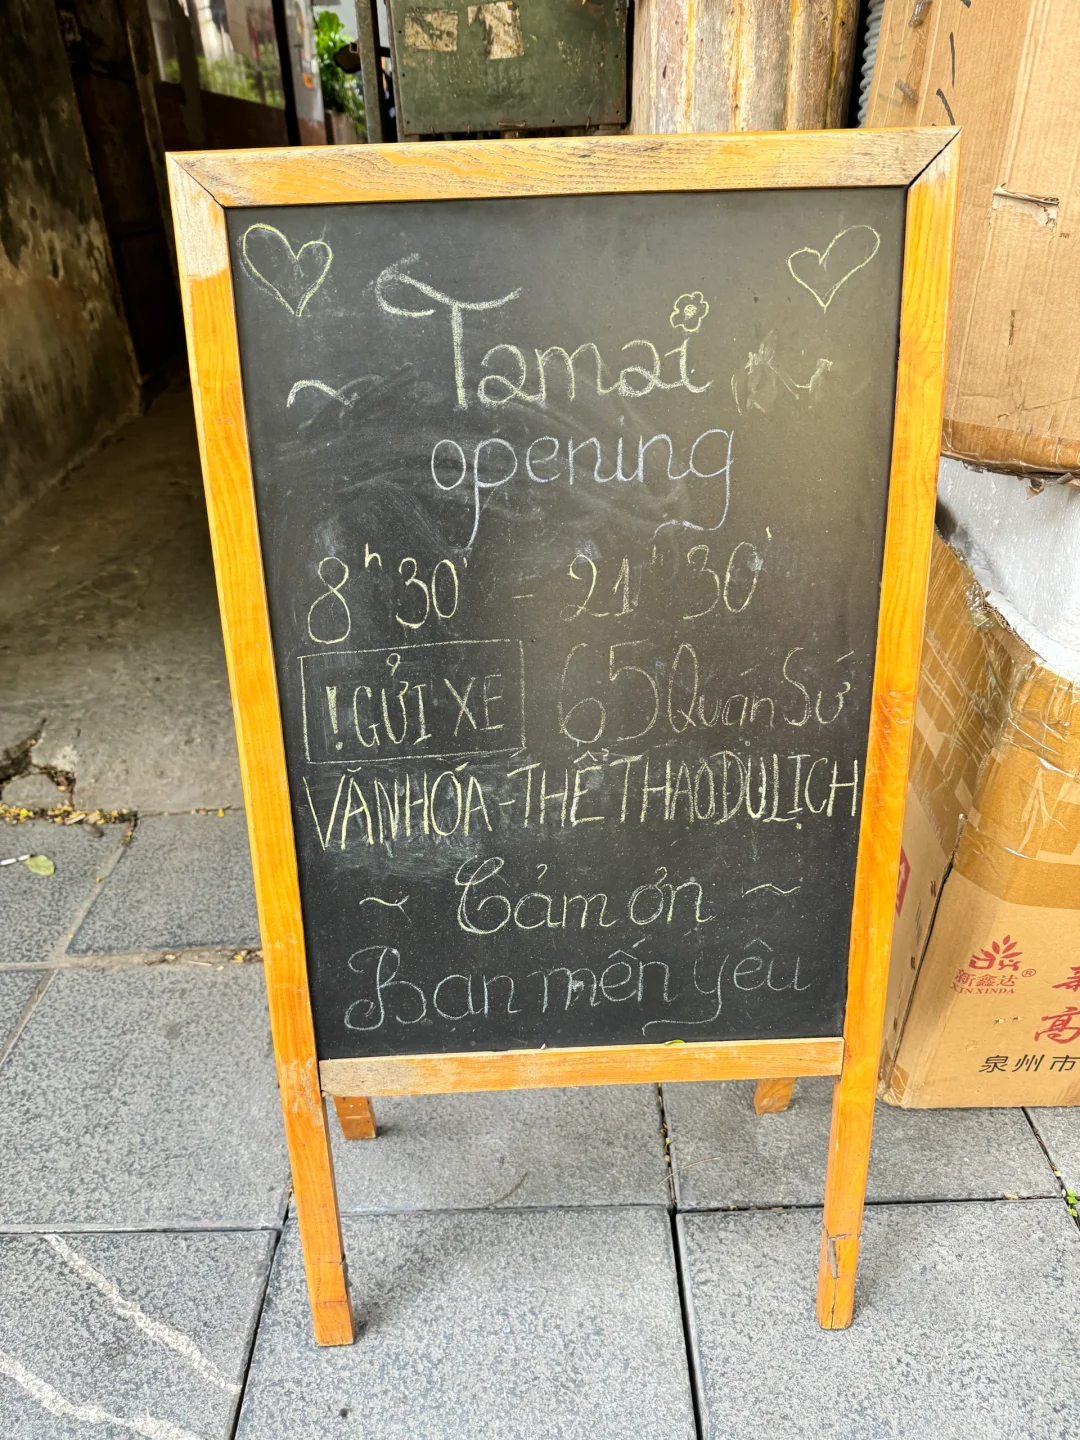 Tamai
opening
8h30' - 21h30'
! GỬI XE 65 Quán Sứ
VĂN HÓA - THỂ THAO DU LỊCH
~ Cảm ơn ~
Bạn mến yêu
新鑫达®
XINXINDA
泉州市